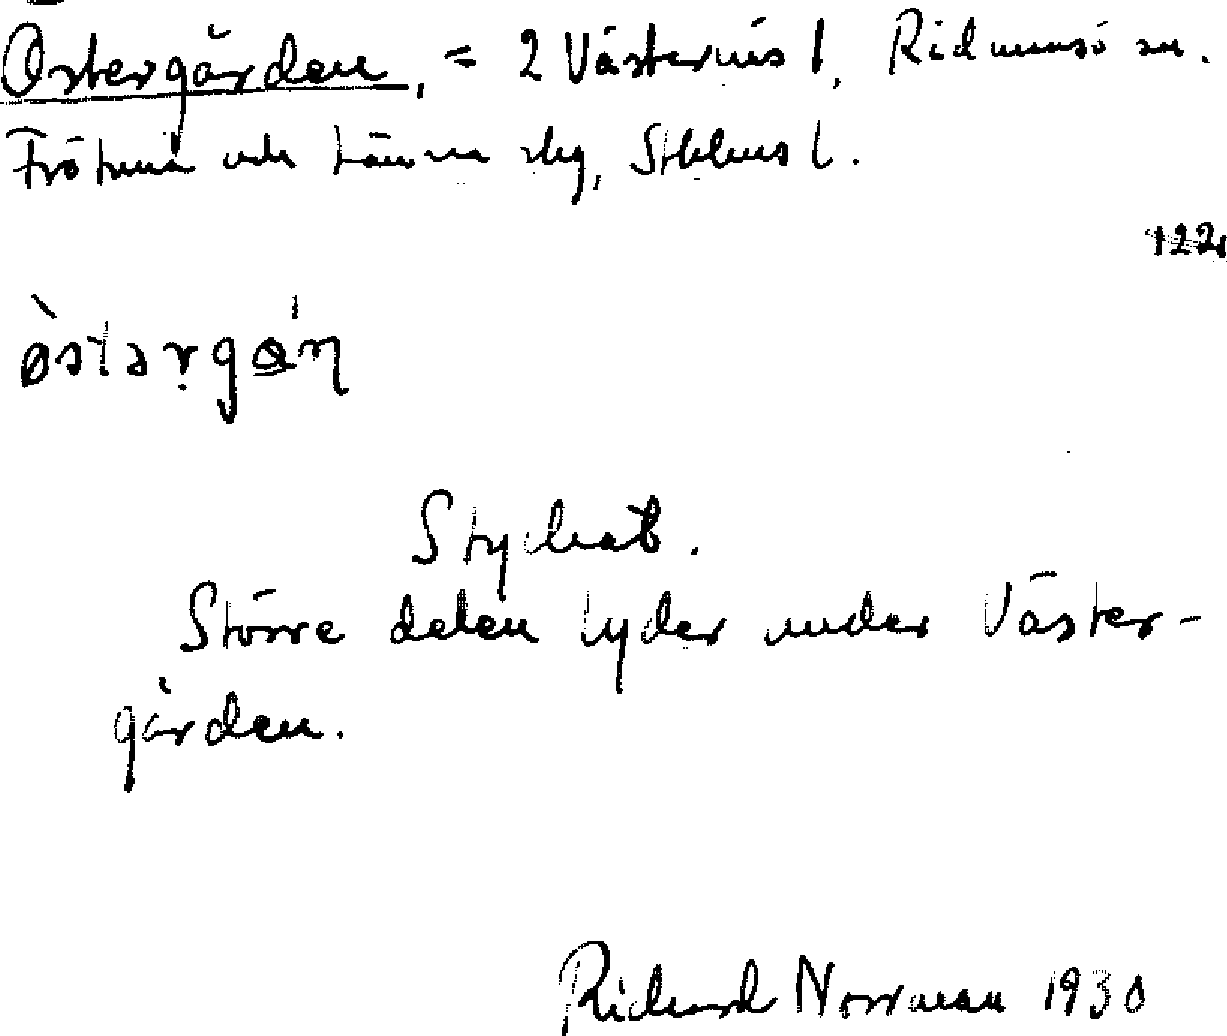 Östergården, = 2 Västernäs 1, Ridmansö sn.
Frötuna och Länna skg, Sthlms l.
122.
østərgɑ́n
Styckat.
Större delen lyder under Väster-
gården.
Richard Norrman 1930